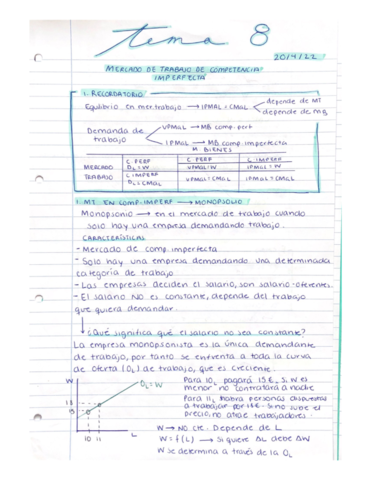 tema 8
20/4/22
MERCADO DE TRABAJO DE COMPETENCIA
IMPERFECTA
1. RECORDATORIO
Equilibrio en mer.trabajo → IPMAL = CMAL
depende de MT
depende de MB
Demanda de
trabajo
VPMAL → MB comp. perf
IPMAL → MB comp. imperfecta
M. BIENES
C. PERF
C. IMPERF
MERCADO
TRABAJO
C. PERF
OL = W
VPMAL = W
IPMAL = W
C. IMPERF
OL ≠ CMAL
VPMAL = CMAL
IPMAL = CMAL
1. MT. EN COMP. IMPERF → MONOPSOLIO
Monopsonio → en el mercado de trabajo cuando
solo hay una empresa demandando trabajo.
CARACTERÍSTICAS
- Mercado de comp. imperfecta.
- Solo hay una empresa demandando una determinada
categoría de trabajo
- Las empresas deciden el salario, son salario-oferentes.
- El salario NO es constante, depende del trabajo
que quiera demandar.
¿Qué significa qué el salario no sea constante?
La empresa monopsonista es la única demandante
de trabajo, por tanto se enfrenta a toda la curva
de oferta (OL) de trabajo, que es creciente.
W
OL = W
18
15
10 11
L
Para 10L pagará 15€, si W es
menor no contratará a nadie
Para 11L habrá personas dispuestas
a trabajar por 18€. Si no sube el
precio, no atrae trabajadores.
W → NO cte. Depende de L
W = f(L) → Si quiere ΔL debe ΔW
W se determina a través de la OL